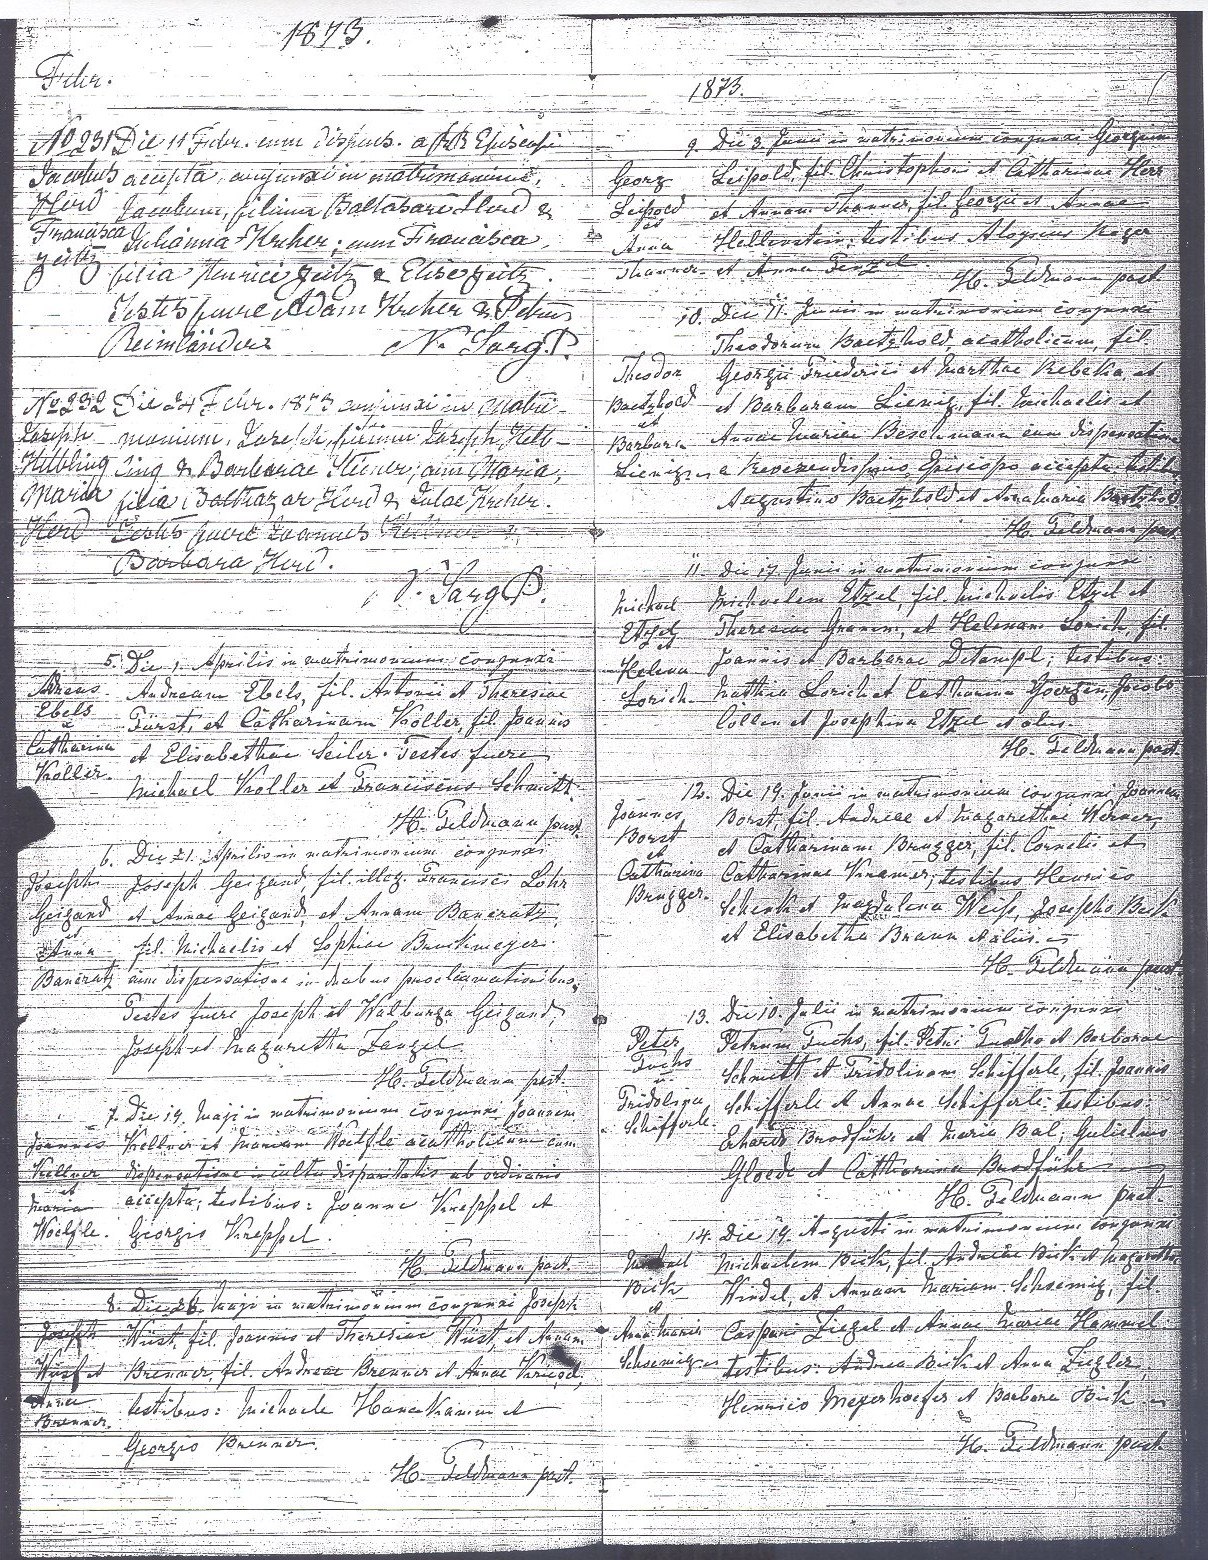 1873.
Febr.
No 231 Die 11 Febr. cum dispens. a RR Episcopi
Jacobus accepta, conjunxi in matrimonium,
Herd Jacobum, filium Baltasare Herd &
Francisca Juliánna Kreher; cum Francisca,
Zeitz filia Henrici Zeitz & Elise Zeitz.
Testes fuere Adam Kreher & Petrus
Reimländer N. Sarg. P.
No 232 Die 24 Febr. 1873 conjunxi in matri-
Joseph monium, Joseph, filium Joseph Helb-
Helbling ling & Barbarae Steiner; cum Maria,
Maria filia Balthazar Herd & Julae Kreher.
Herd Testes fuere Joannes
Barbara Herd.
N. Sarg P.
5. Die 1. Aprilis in matrimonium conjunxi
Andreas Andream Ebels, fil. Antonii et Theresiae
Ebels Fürst, et Catharinam Koller, fil. Joannis
Catharina et Elisabethae Seiler. Testes fuere
Koller. Michael Koller et Franciscus Schmitt.
H. Feldmann past.
6. Die 21. Aprilis in matrimonium conjunxi
Joseph Joseph Geigand, fil. illeg. Francisci Lohr
Geigand et Annae Geigand, et Annam Bancratz,
et Anna fil. Michaelis et Sophiae Bruckmeyer.
Bancratz cum dispensatione in duabus proclamationibus,
Testes fuere Joseph et Walburga Geigand,
Joseph et Magaretha Zangel
H. Feldmann past.
7. Die 19. Maji in matrimonium conjunxi Joannem
Joannes Kellner et Mariam Woelfle acatholicam cum
Kellner dispensatione in cultu disparitatis ab ordinario
et Maria accepta; testibus: Joanne Kreppel et
Woelfle. Georgio Kreppel.
H. Feldmann past.
8. Die 26. Maji in matrimonium conjunxi Joseph
Joseph Wüst, fil. Joannis et Theresiae Wüst, et Annam
Wüst et Brenner, fil. Andreae Brenner et Annae Kriegel,
Anna testibus: Michaele Hanekamm et
Brenner. Georgio Brenner.
H. Feldmann past.
1873.
9. Die 3. Junii in matrimonium conjunxi Georgium
Georg Leipold, fil. Christophori et Catharinae Herz
Leipold et Annam Thanner, fil. Georgii et Annae
et Anna Hellenstein; testibus Aloysius Kager
Thanner. et Anna Penzel.
H. Feldmann past.
10. Die 11. Junii in matrimonium conjunxi
Theodorum Baetzhold, acatholicum, fil.
Theodor Georgii Friederici et Marthae Rebekka et
Baetzhold et Barbaram Lienig, fil. Michaelis et
et Barbara Annae Mariae Beschmann cum dispensatione
Lienig. a Reverendissimo Episcopo accepta. testib.
Augustino Baetzhold et Anna Maria Baetzhold
H. Feldmann past.
11. Die 17. Junii in matrimonium conjunxi
Michael Michaelem Etzel, fil. Michaelis Etzel et
Etzel Theresiae Gramm, et Helenam Lorich, fil.
et Helena Joannis et Barbarae Ditampl; testibus:
Lorich. Mathia Lorich et Catharina Goergen, Jacobo
Cöllen et Josephina Etzel et aliis.
H. Feldmann past.
12. Die 19. Junii in matrimonium conjunxi Joannem
Joannes Borst, fil. Andreae et Magarethae Werner,
Borst et Catharinam Brugger, fil. Cornelii et
et Catharina Catharinae Kramer; testibus Henrico
Brugger. Schenk et Magdalena Weiss, Josepho Bick
et Elisabetha Braun et aliis.
H. Feldmann past.
13. Die 10. Julii in matrimonium conjunxi
Peter Petrum Fuchs, fil. Petri Fuchs et Barbarae
Fuchs Schmitt et Fridolinam Schifferle, fil. Joannis
Fridolina Schifferle et Annae Schifferle. testibus:
Schifferle. Erhardo Brodführ et Maria Bal; Gulielmo
Gloede et Catharina Brodführ
H. Feldmann past.
14. Die 19. Augusti in matrimonium conjunxi
Michael Michaelem Bick, fil. Andreae Bick et Magaretha
Bick Windel, et Annam Mariam Schsemig, fil.
et Anna Maria Caspari Ziegel et Annae Mariae Hammel
Schsemig testibus: Andrea Bick et Anna Ziegler,
Henrico Meyerhoefer et Barbara Bick
H. Feldmann past.